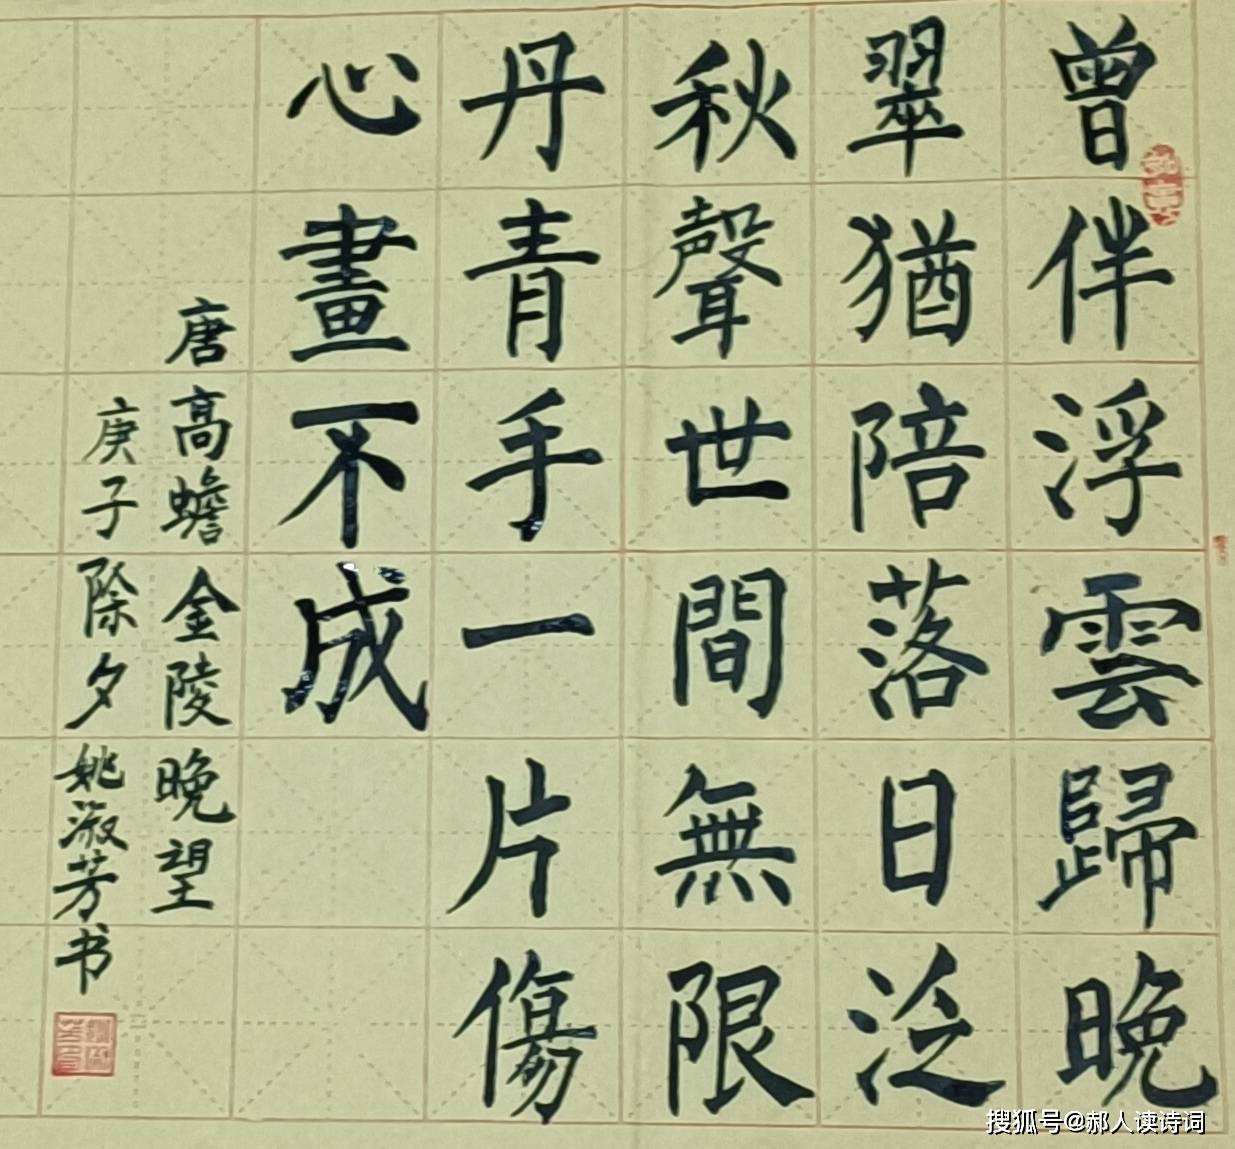 曾伴浮雲歸晚
翠猶陪落日泛
秋聲世間無限
丹青手一片傷
心畫不成
唐高蟾金陵晚望
庚子除夕姚淑芳书
搜狐号@郝人读诗词